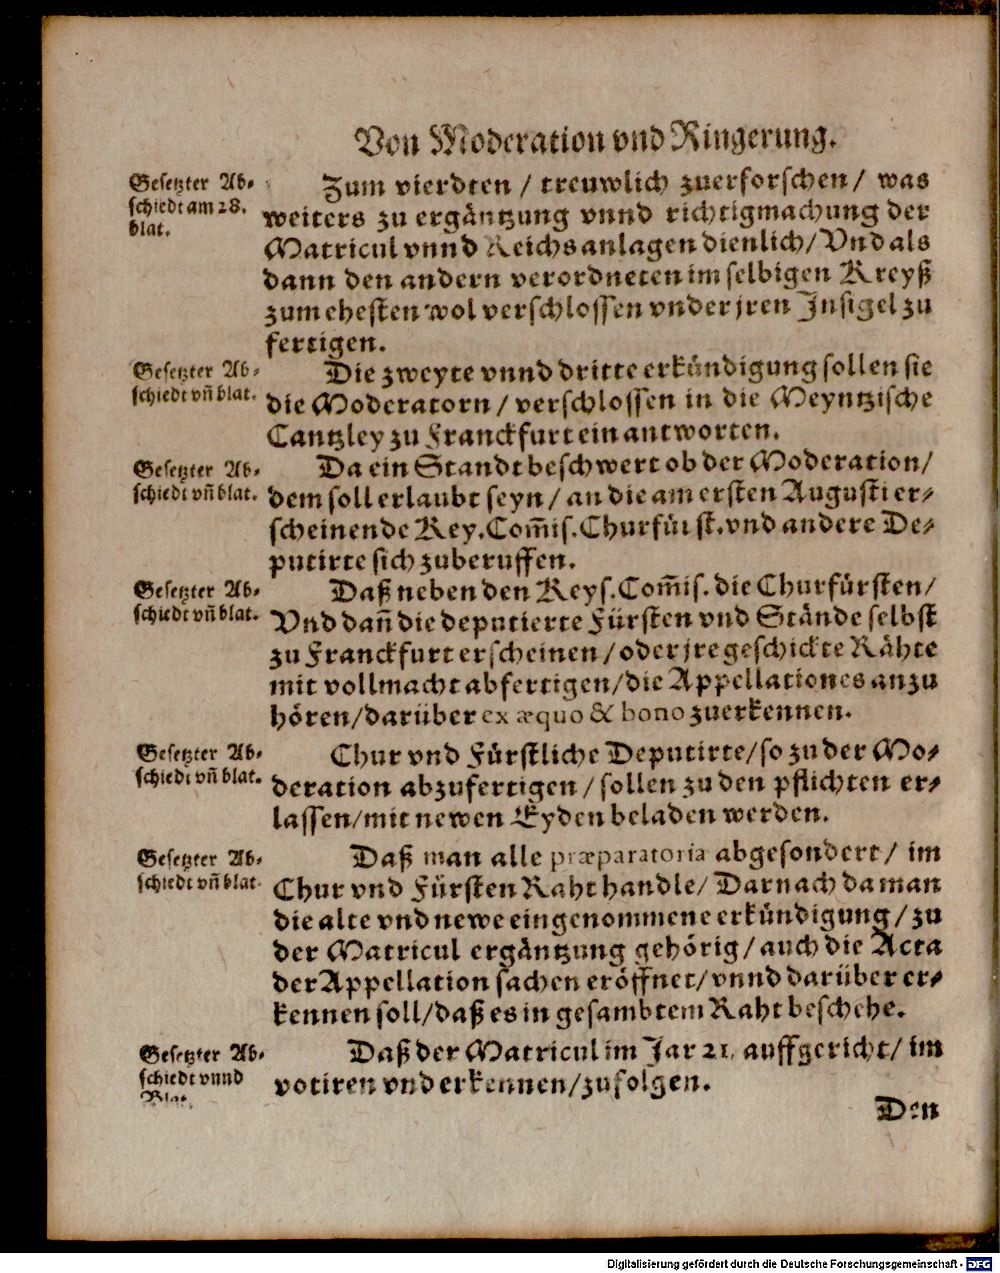 Von Moderation vnd Ringerung.
Gesetzter Ab-
schiedt am 28.
blat.
Zum vierdten / treuwlich zuerforschen / was
weiters zu ergäntzung vnnd richtigmachung der
Matricul vnnd Reichsanlagen dienlich / Vnd als
dann den andern verordneten im selbigen Kreyß
zum ehesten wol verschlossen vnder jren Insigel zu
fertigen.
Gesetzter Ab-
schiedt vñ blat.
Die zweyte vnnd dritte erkündigung sollen sie
die Moderatorn / verschlossen in die Meyntzische
Cantzley zu Franckfurt einantworten.
Gesetzter Ab-
schiedt vñ blat.
Da ein Standt beschwert ob der Moderation /
dem soll erlaubt seyn / an die am ersten Augusti er-
scheinende Key. Com̃is. Churfürst. vnd andere De-
putirte sich zuberuffen.
Gesetzter Ab-
schiedt vñ blat.
Daß neben den Keys. Com̃is. die Churfürsten /
Vnd dañ die deputierte Fürsten vnd Stände selbst
zu Franckfurt erscheinen / oder jre geschickte Rähte
mit vollmacht abfertigen / die Appellationes anzu
hören / darüber ex æquo & bono zuerkennen.
Gesetzter Ab-
schiedt vñ blat.
Chur vnd Fürstliche Deputirte / so zu der Mo-
deration abzufertigen / sollen zu den pflichten er-
lassen / mit newen Eyden beladen werden.
Gesetzter Ab-
schiedt vñ blat.
Daß man alle præparatoria abgesondert / im
Chur vnd Fürsten Raht handle / Darnach da man
die alte vnd newe eingenommene erkündigung / zu
der Matricul ergäntzung gehörig / auch die Acta
der Appellation sachen eröffnet / vnnd darüber er-
kennen soll / daß es in gesambtem Raht beschehe.
Gesetzter Ab-
schiedt vnnd
Blat.
Daß der Matricul im Jar 21. auffgericht / im
votiren vnd erkennen / zufolgen.
Den
Digitalisierung gefördert durch die Deutsche Forschungsgemeinschaft - DFG